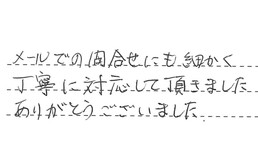 メールでの問合せにも細かく
丁寧に対応して頂きました
ありがとうございました